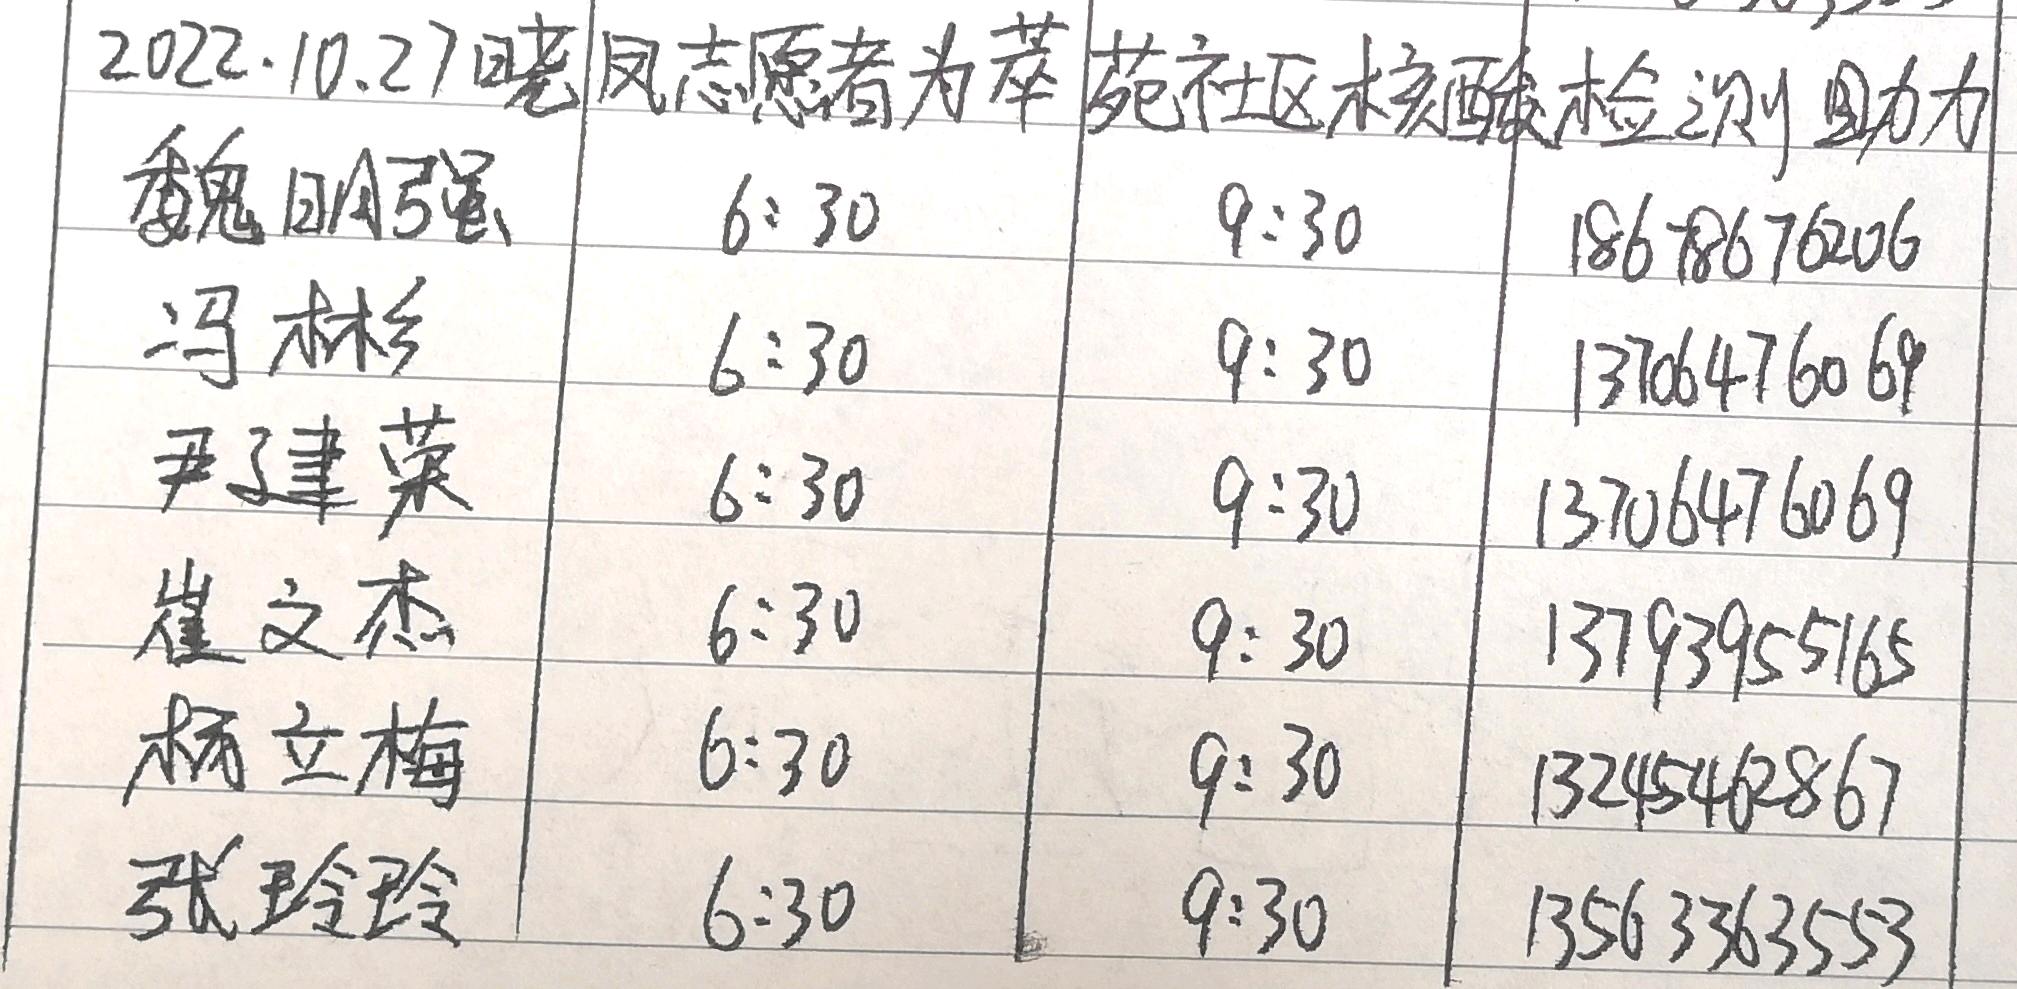 2022.10.27日晓凤志愿者为萃苑社区核酸检测助力
魏明强 6:30 9:30 18678676206
冯彬 6:30 9:30 13706476069
尹建荣 6:30 9:30 13706476069
崔文杰 6:30 9:30 13793955165
杨立梅 6:30 9:30 13245462867
张玲玲 6:30 9:30 13563363553